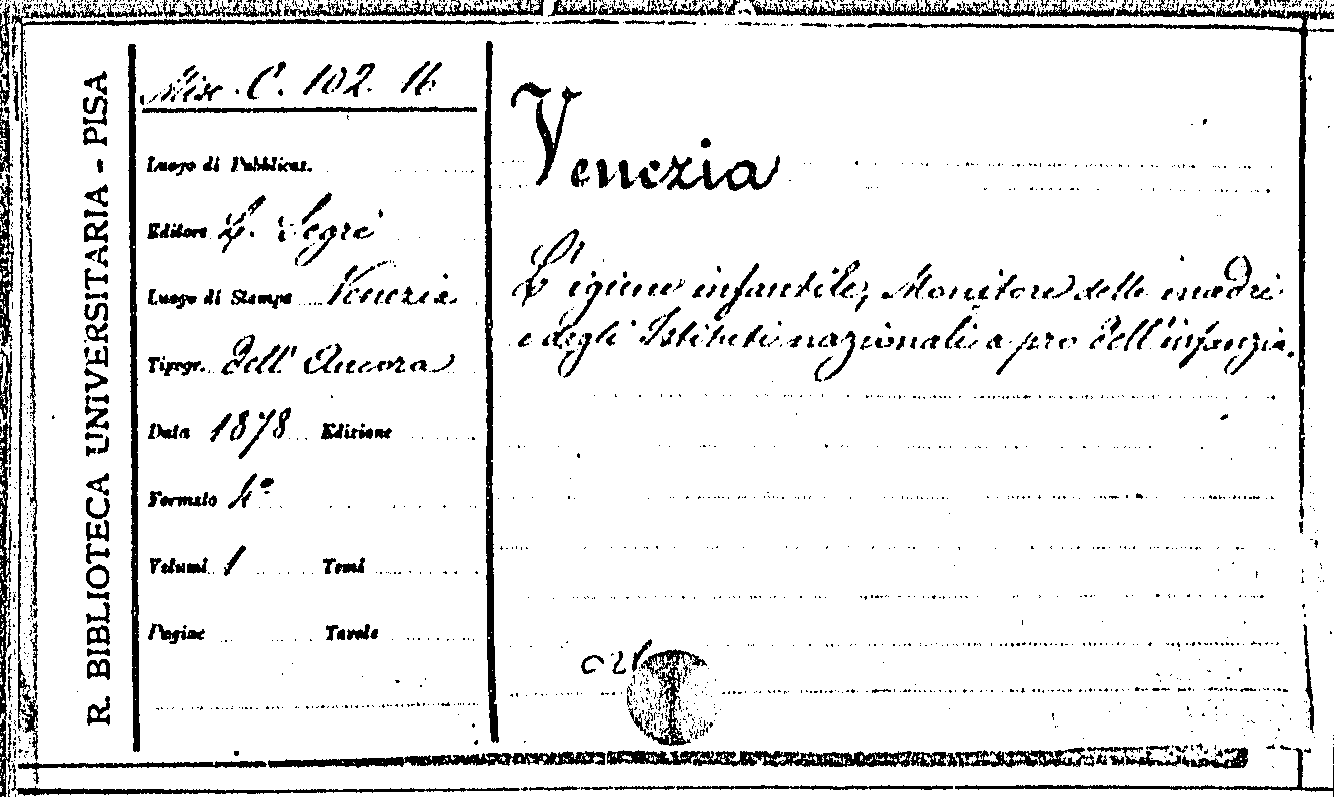 R. BIBLIOTECA UNIVERSITARIA - PISA
Misc. C. 102. 16
Luogo di Pubblicaz.
Editore L. Segrè
Luogo di Stampa Venezia
Tipogr. dell' Ancora
Data 1878 Edizione
Formato 4º
Volumi 1 Tomi
Pagine Tavole
Venezia
L'igiene infantile, Monitore delle madri
e degli Istituti nazionali a pro dell'infanzia.